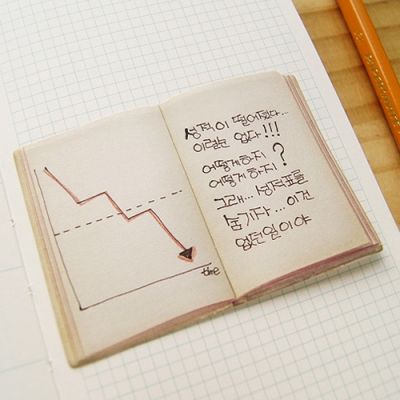 성적이 떨어졌다...
이럴순 없다!!!
어떻게하지?
어떻게하지?
그래... 성적표를
숨기자... 이건
없던일이야
time